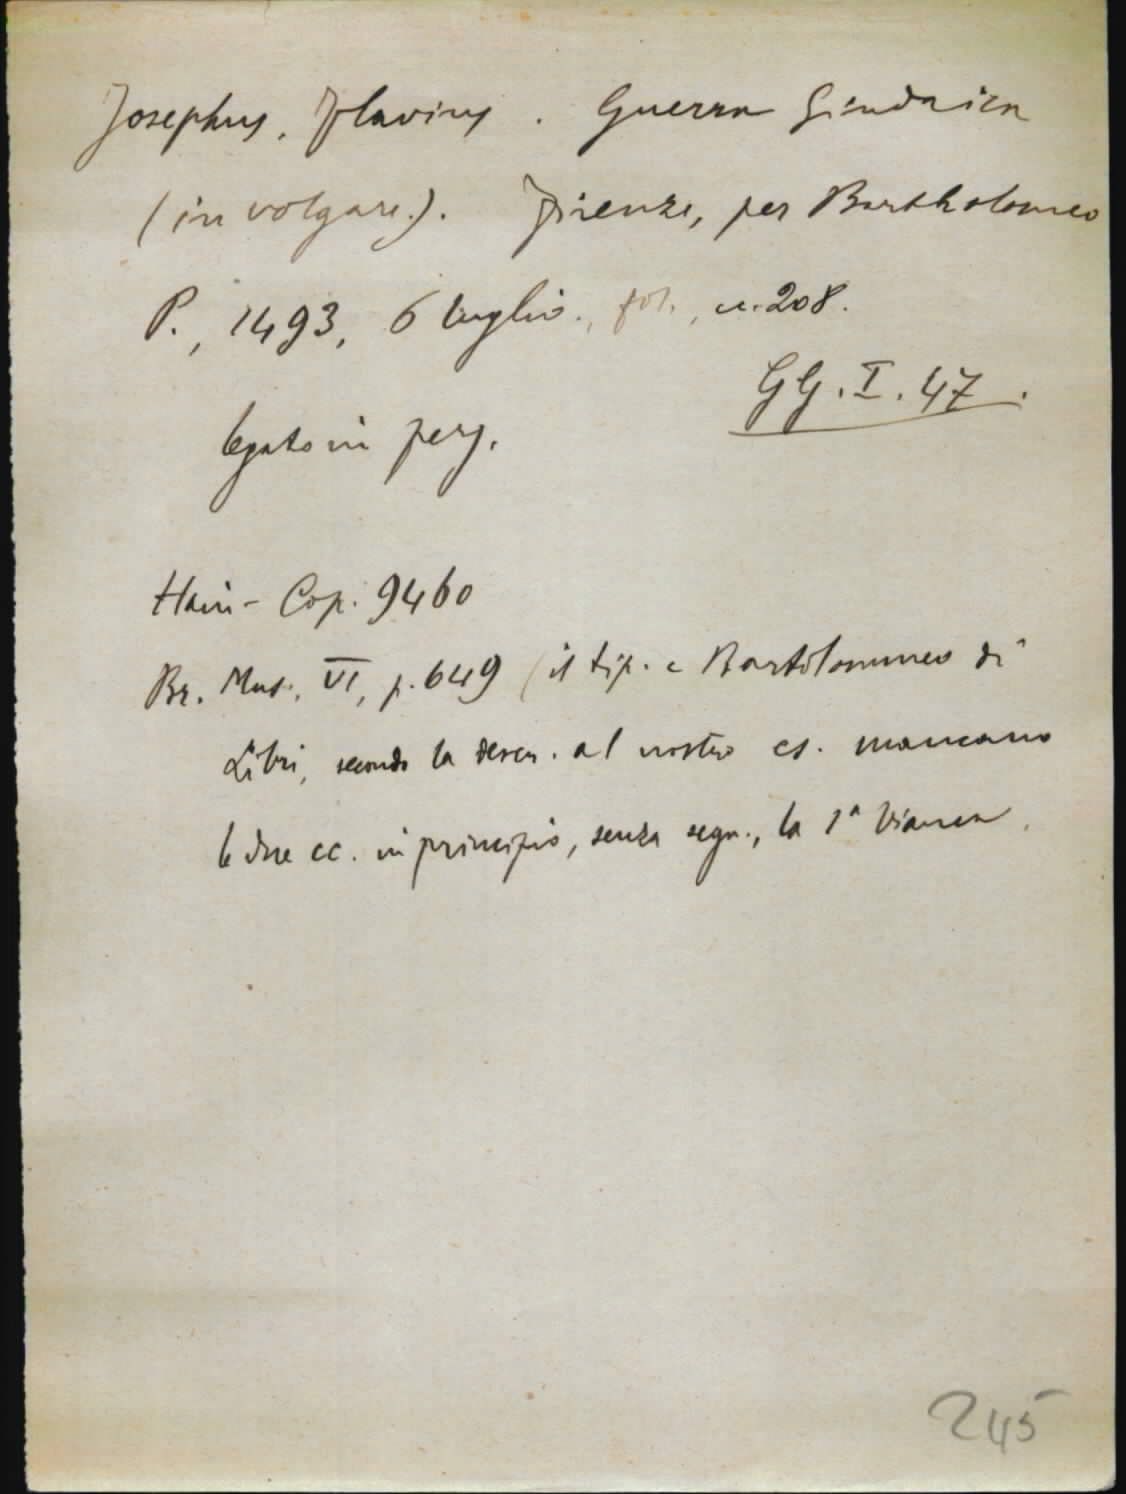 Josephus, Flavius. Guerra Giudaica
(in volgare). Firenze, per Bartholomeo
P., 1493, 6 luglio., fol., c. 208.
GG. I. 47.
legato in perg.
Hain-Cop. 9460
Br. Mus., VI, p. 649 (il tip. è Bartolommeo di
Libri, secondo la descr. al nostro es. mancano
le due cc. in principio, senza segn., la 1ª bianca.
245